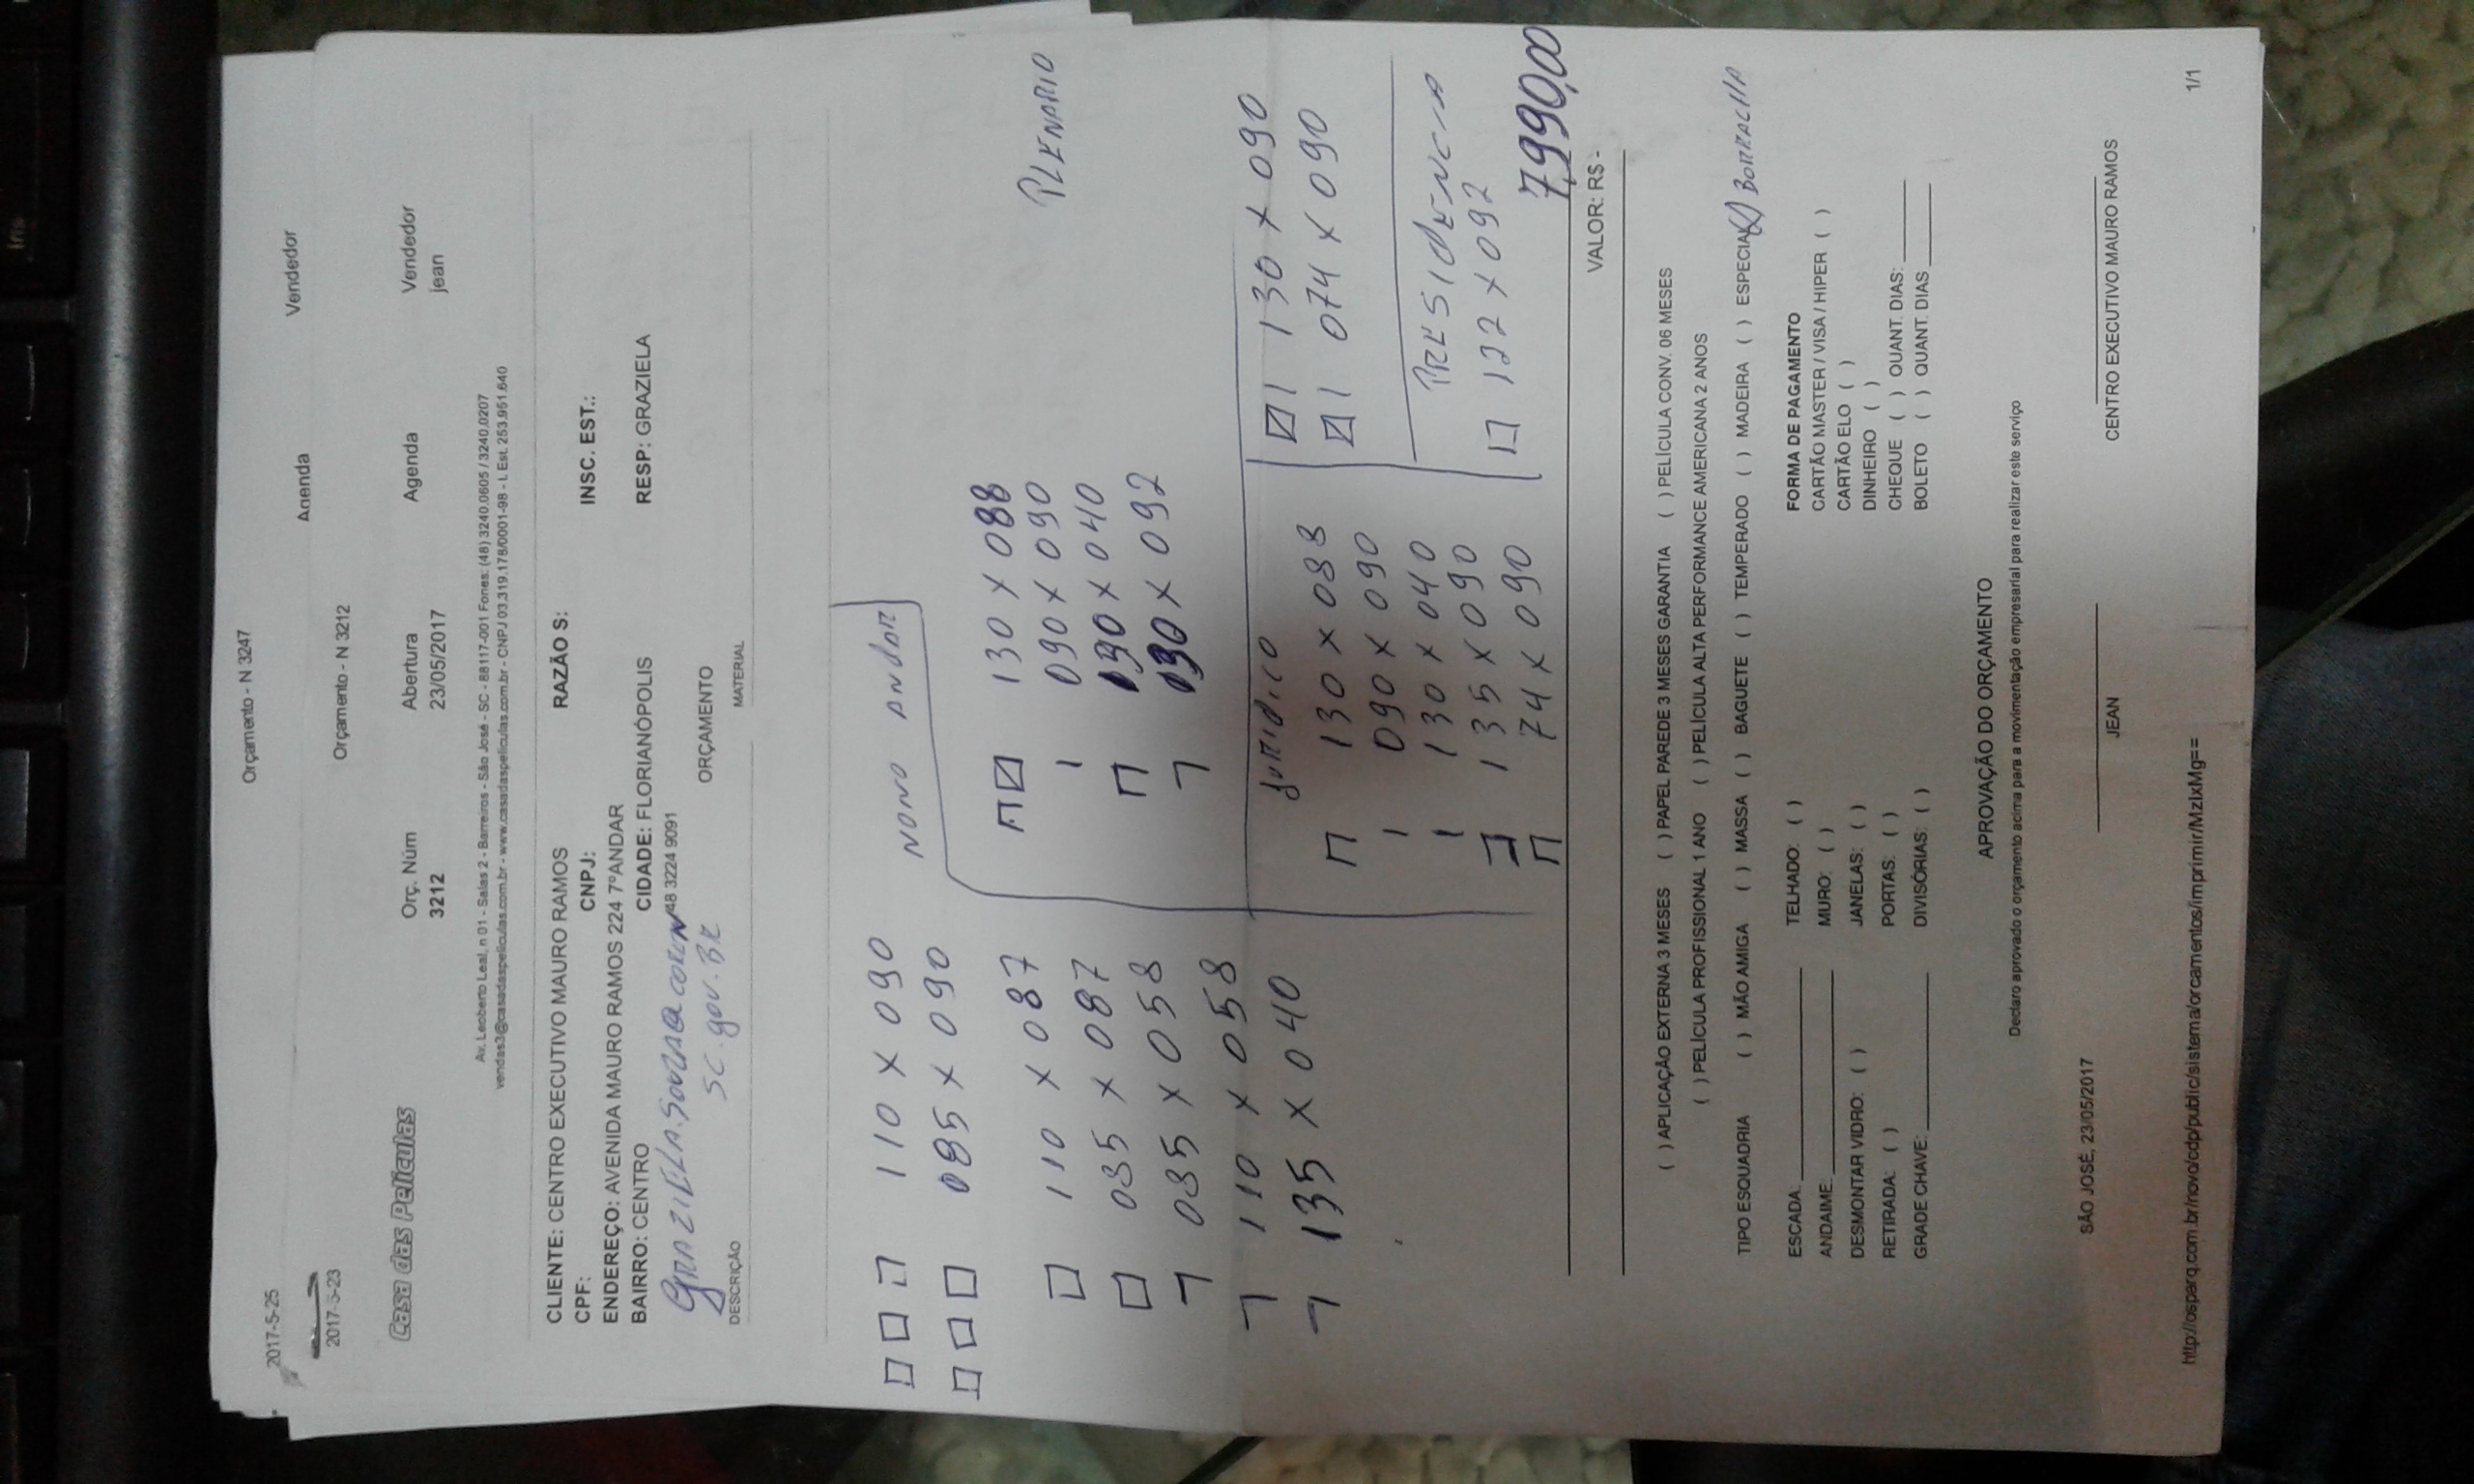 2017-5-25 Orçamento - N 3247
Agenda Vendedor
2017-5-23 Orçamento - N 3212
Casa das Películas
Orç. Núm Abertura Agenda Vendedor
3212 23/05/2017 jean
Av. Leoberto Leal, n 01 - Salas 2 - Barreiros - São José - SC - 88117-001 Fones: (48) 3240.0605 / 3240.0207
vendas3@casadaspeliculas.com.br - www.casadaspeliculas.com.br - CNPJ 03.319.178/0001-98 - I. Est. 253.951.640
CLIENTE: CENTRO EXECUTIVO MAURO RAMOS RAZÃO S:
CPF: CNPJ: INSC. EST.:
ENDEREÇO: AVENIDA MAURO RAMOS 224 7ºANDAR
BAIRRO: CENTRO CIDADE: FLORIANÓPOLIS RESP: GRAZIELA
GRAZIELA.SOUZA@COREN 48 3224 9091
SC.gov.BR
ORÇAMENTO
DESCRIÇÃO MATERIAL
110 x 090
085 x 090
110 x 087
035 x 087
035 x 058
110 x 058
135 x 040
NONO ANDAR
PLENARIO
130 x 088
090 x 090
130 x 040
130 x 092
JURIDICO
130 x 088
090 x 090
130 x 040
135 x 090
74 x 090
1 130 x 090
1 074 x 090
PRESIDENCIA
122 x 092
7,990,00
VALOR: R$ -
( ) APLICAÇÃO EXTERNA 3 MESES ( ) PAPEL PAREDE 3 MESES GARANTIA ( ) PELÍCULA CONV. 06 MESES
( ) PELÍCULA PROFISSIONAL 1 ANO ( ) PELÍCULA ALTA PERFORMANCE AMERICANA 2 ANOS
TIPO ESQUADRIA ( ) MÃO AMIGA ( ) MASSA ( ) BAGUETE ( ) TEMPERADO ( ) MADEIRA ( ) ESPECIAL (x) BORRACHA
ESCADA: TELHADO: ( ) FORMA DE PAGAMENTO
ANDAIME: MURO: ( ) CARTÃO MASTER / VISA / HIPER ( )
DESMONTAR VIDRO: ( ) JANELAS: ( ) CARTÃO ELO ( )
RETIRADA: ( ) PORTAS: ( ) DINHEIRO ( )
GRADE CHAVE: DIVISÓRIAS: ( ) CHEQUE ( ) QUANT. DIAS:
BOLETO ( ) QUANT. DIAS
APROVAÇÃO DO ORÇAMENTO
Declaro aprovado o orçamento acima para a movimentação empresarial para realizar este serviço
SÃO JOSÉ, 23/05/2017
JEAN CENTRO EXECUTIVO MAURO RAMOS
http://osparq.com.br/novo/cdp/public/sistema/orcamentos/imprimir/MzIxMg== 1/1